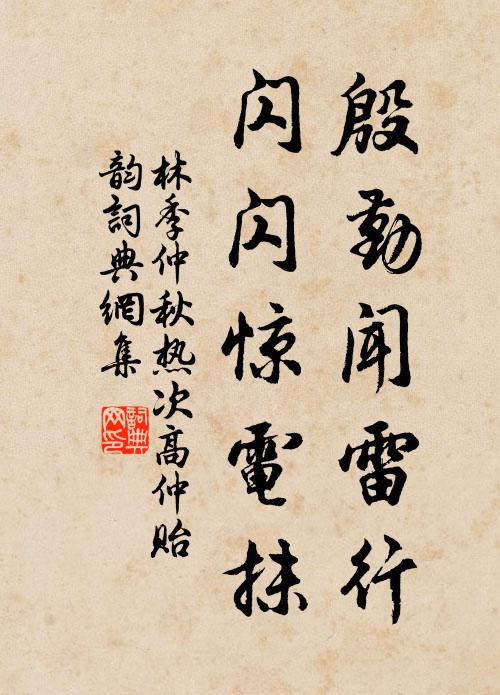 殷勤闻雷行
闪闪惊電抹
林季仲秋热次高仲贻
韵詞典網集
詞典
网印